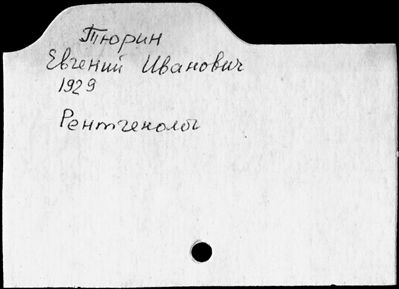 Тюрин
Евгений Иванович
1929
Рентгенолог